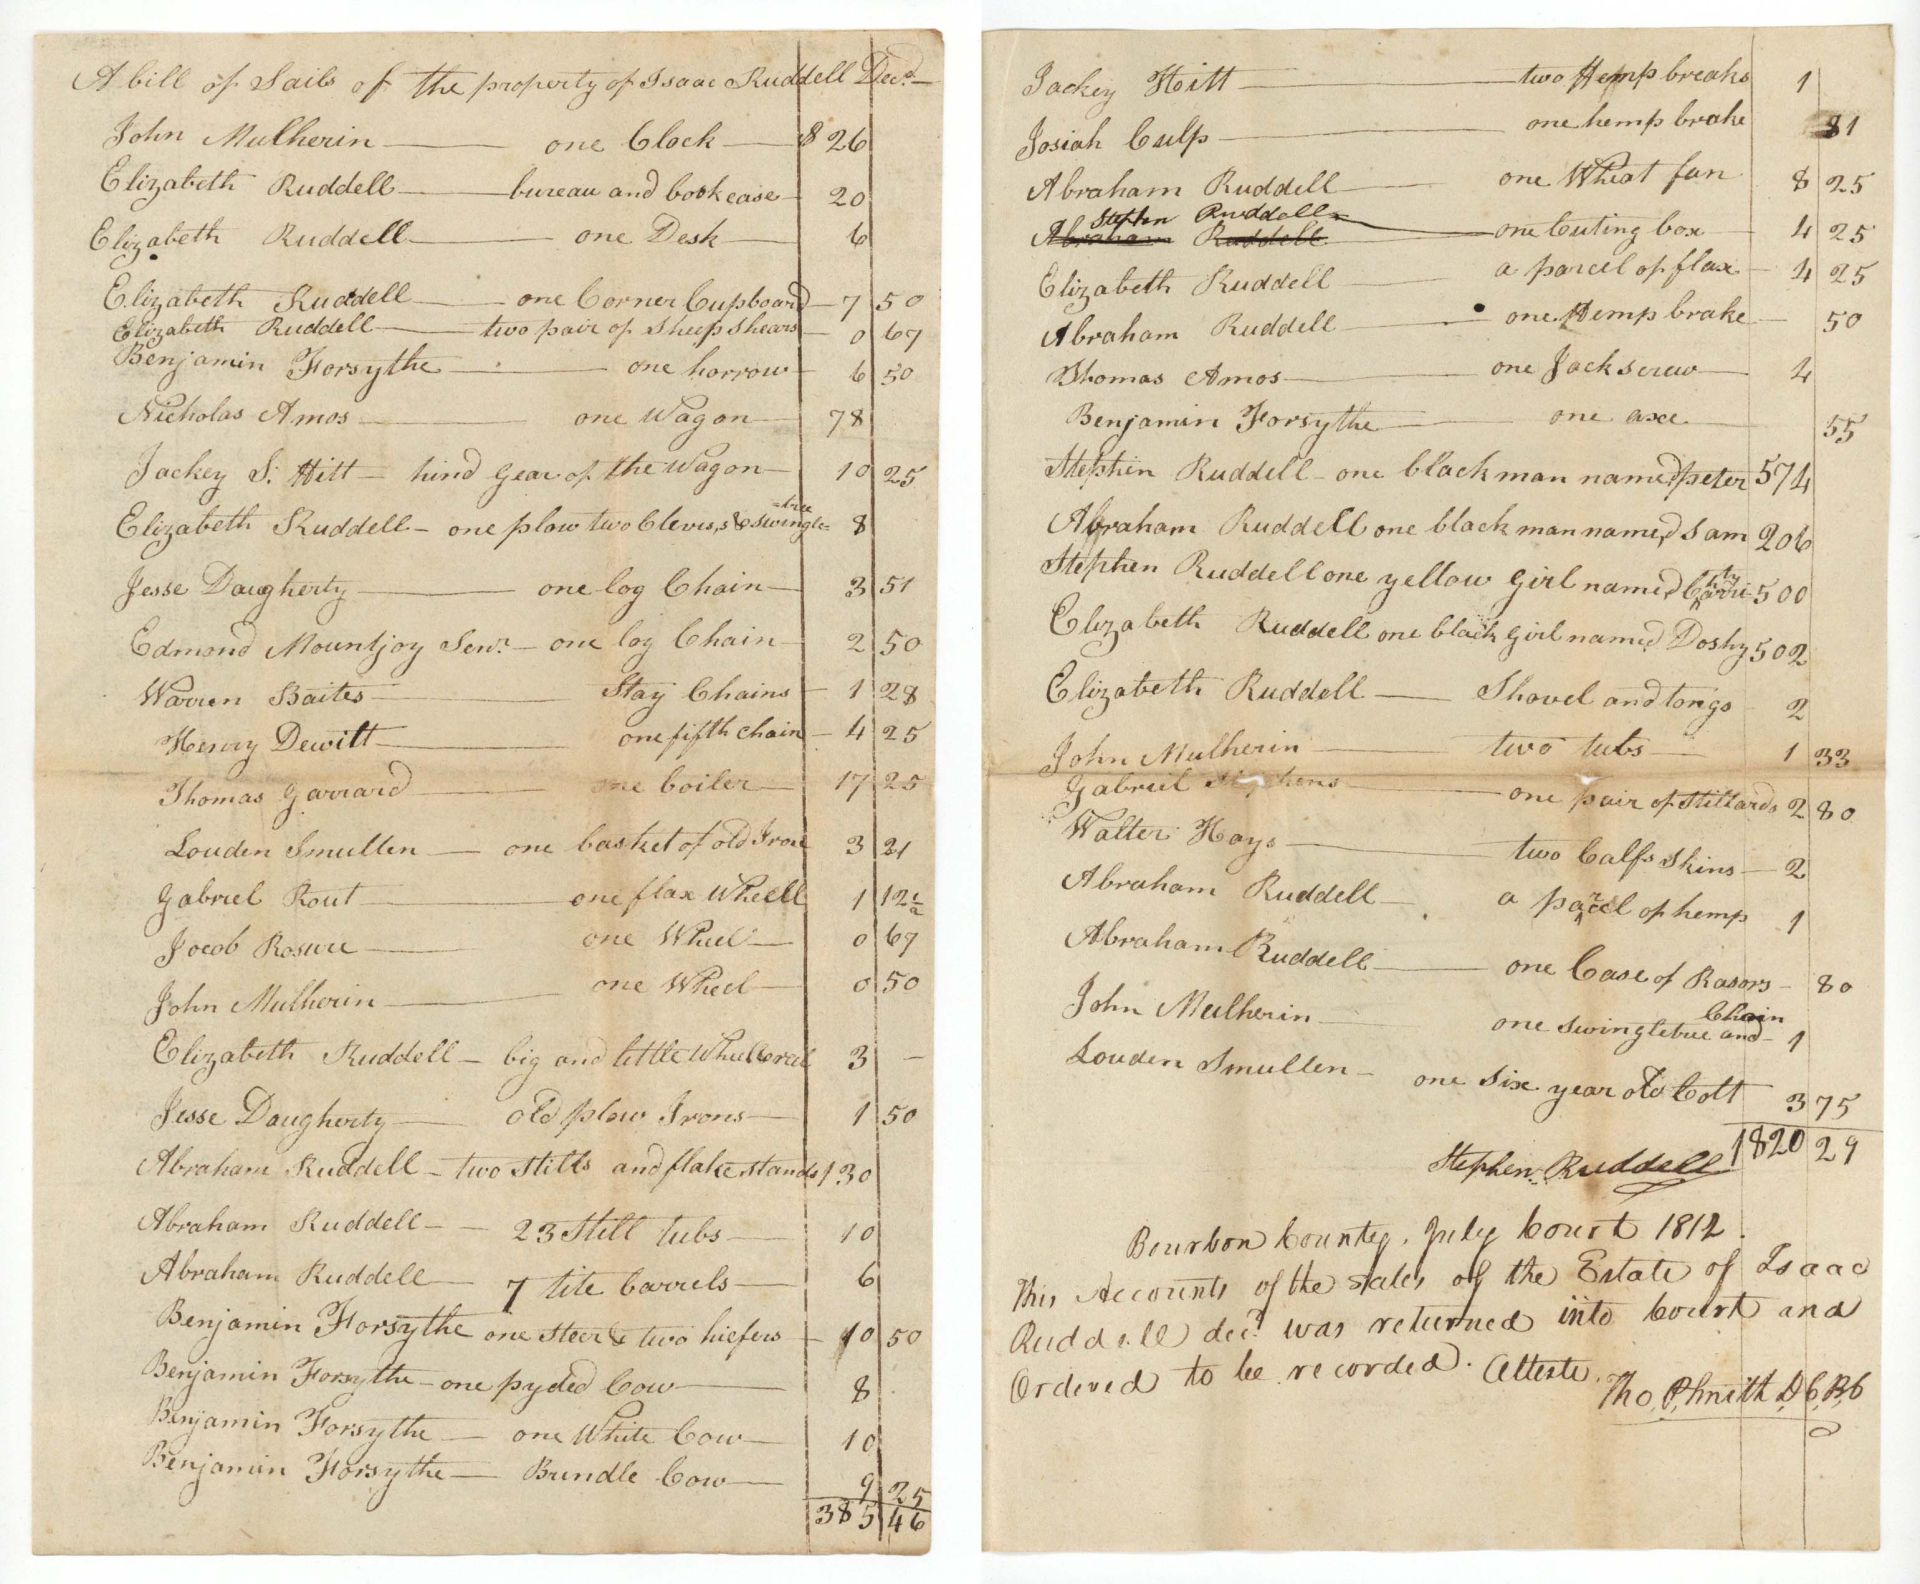 A bill of Sails of the property of Isaac Ruddell Decd
John Mulherin one Clock $ 26
Elizabeth Ruddell bureau and book case 20
Elizabeth Ruddell one Desk 6
Elizabeth Ruddell one Corner Cupboard 7 50
Elizabeth Ruddell two pair of Sheep Shears 0 67
Benjamin Forsythe one harrow 6 50
Nicholas Amos one Wagon 78
Jackey S. Hitt hind gear of the Wagon 10 25
Elizabeth Ruddell one plow two Clevis, & swingle=tree 8
Jesse Daugherty one log Chain 3 51
Edmond Mountjoy Senr. one log Chain 2 50
Warren Baites Stay Chains 1 28
Henry Dewitt one fifth chain 4 25
Thomas Garrard one boiler 17 25
Louden Smullen one basket of old Iron 3 21
Gabriel Rout one flax Wheell 1 12 1/2
Jocob Rosure one Wheel 0 67
John Mulherin one Wheel 0 50
Elizabeth Ruddell big and little Wheel & reel 3 –
Jesse Daugherty old plow Irons 1 50
Abraham Ruddell two Stills and flake stands 130
Abraham Ruddell 23 Still tubs 10
Abraham Ruddell 7 tite barrels 6
Benjamin Forsythe one steer & two hiefers 10 50
Benjamin Forsythe one pyded Cow 8
Benjamin Forsythe one White Cow 10
Benjamin Forsythe Brindle Cow 9 25
385 46
Jackey Hoitt two Hemp breaks 1
Josiah Culp one hemp brake 81
Abraham Ruddell one Wheat fan 8 25
Stephen Ruddell
Abraham Ruddell one Cuting box 4 25
Elizabeth Ruddell a parcel of flax 4 25
Abraham Ruddell one Hemp brake 50
Thomas Amos one Jack screw 4
Benjamin Forsythe one axe 55
Stephin Ruddell one black man named peter 574
Abraham Ruddell one black man named Sam 206
Stephen Ruddell one yellow Girl named 500
Elizabeth Ruddell one black girl named Doshy 502
Elizabeth Ruddell Shovel and tongs 2
John Mulherin two tubs 1 33
Gabreil Stephens one pair of Stillards 2 80
Walter Hays two Calfs Skins 2
Abraham Ruddell a parcel of hemp 1
Abraham Ruddell one Case of Rasors 80
John Mulherin one swingletree and Chain 1
Louden Smullen one six year old Colt 3 75
1820 29
Stephen Ruddell
Bourbon County, July Court 1812.
This Accounts of the sales of the Estate of Isaac
Ruddell decd. was returned into Court and
Ordered to be recorded. Atteste.
Tho. P. Smith D.C.B.C